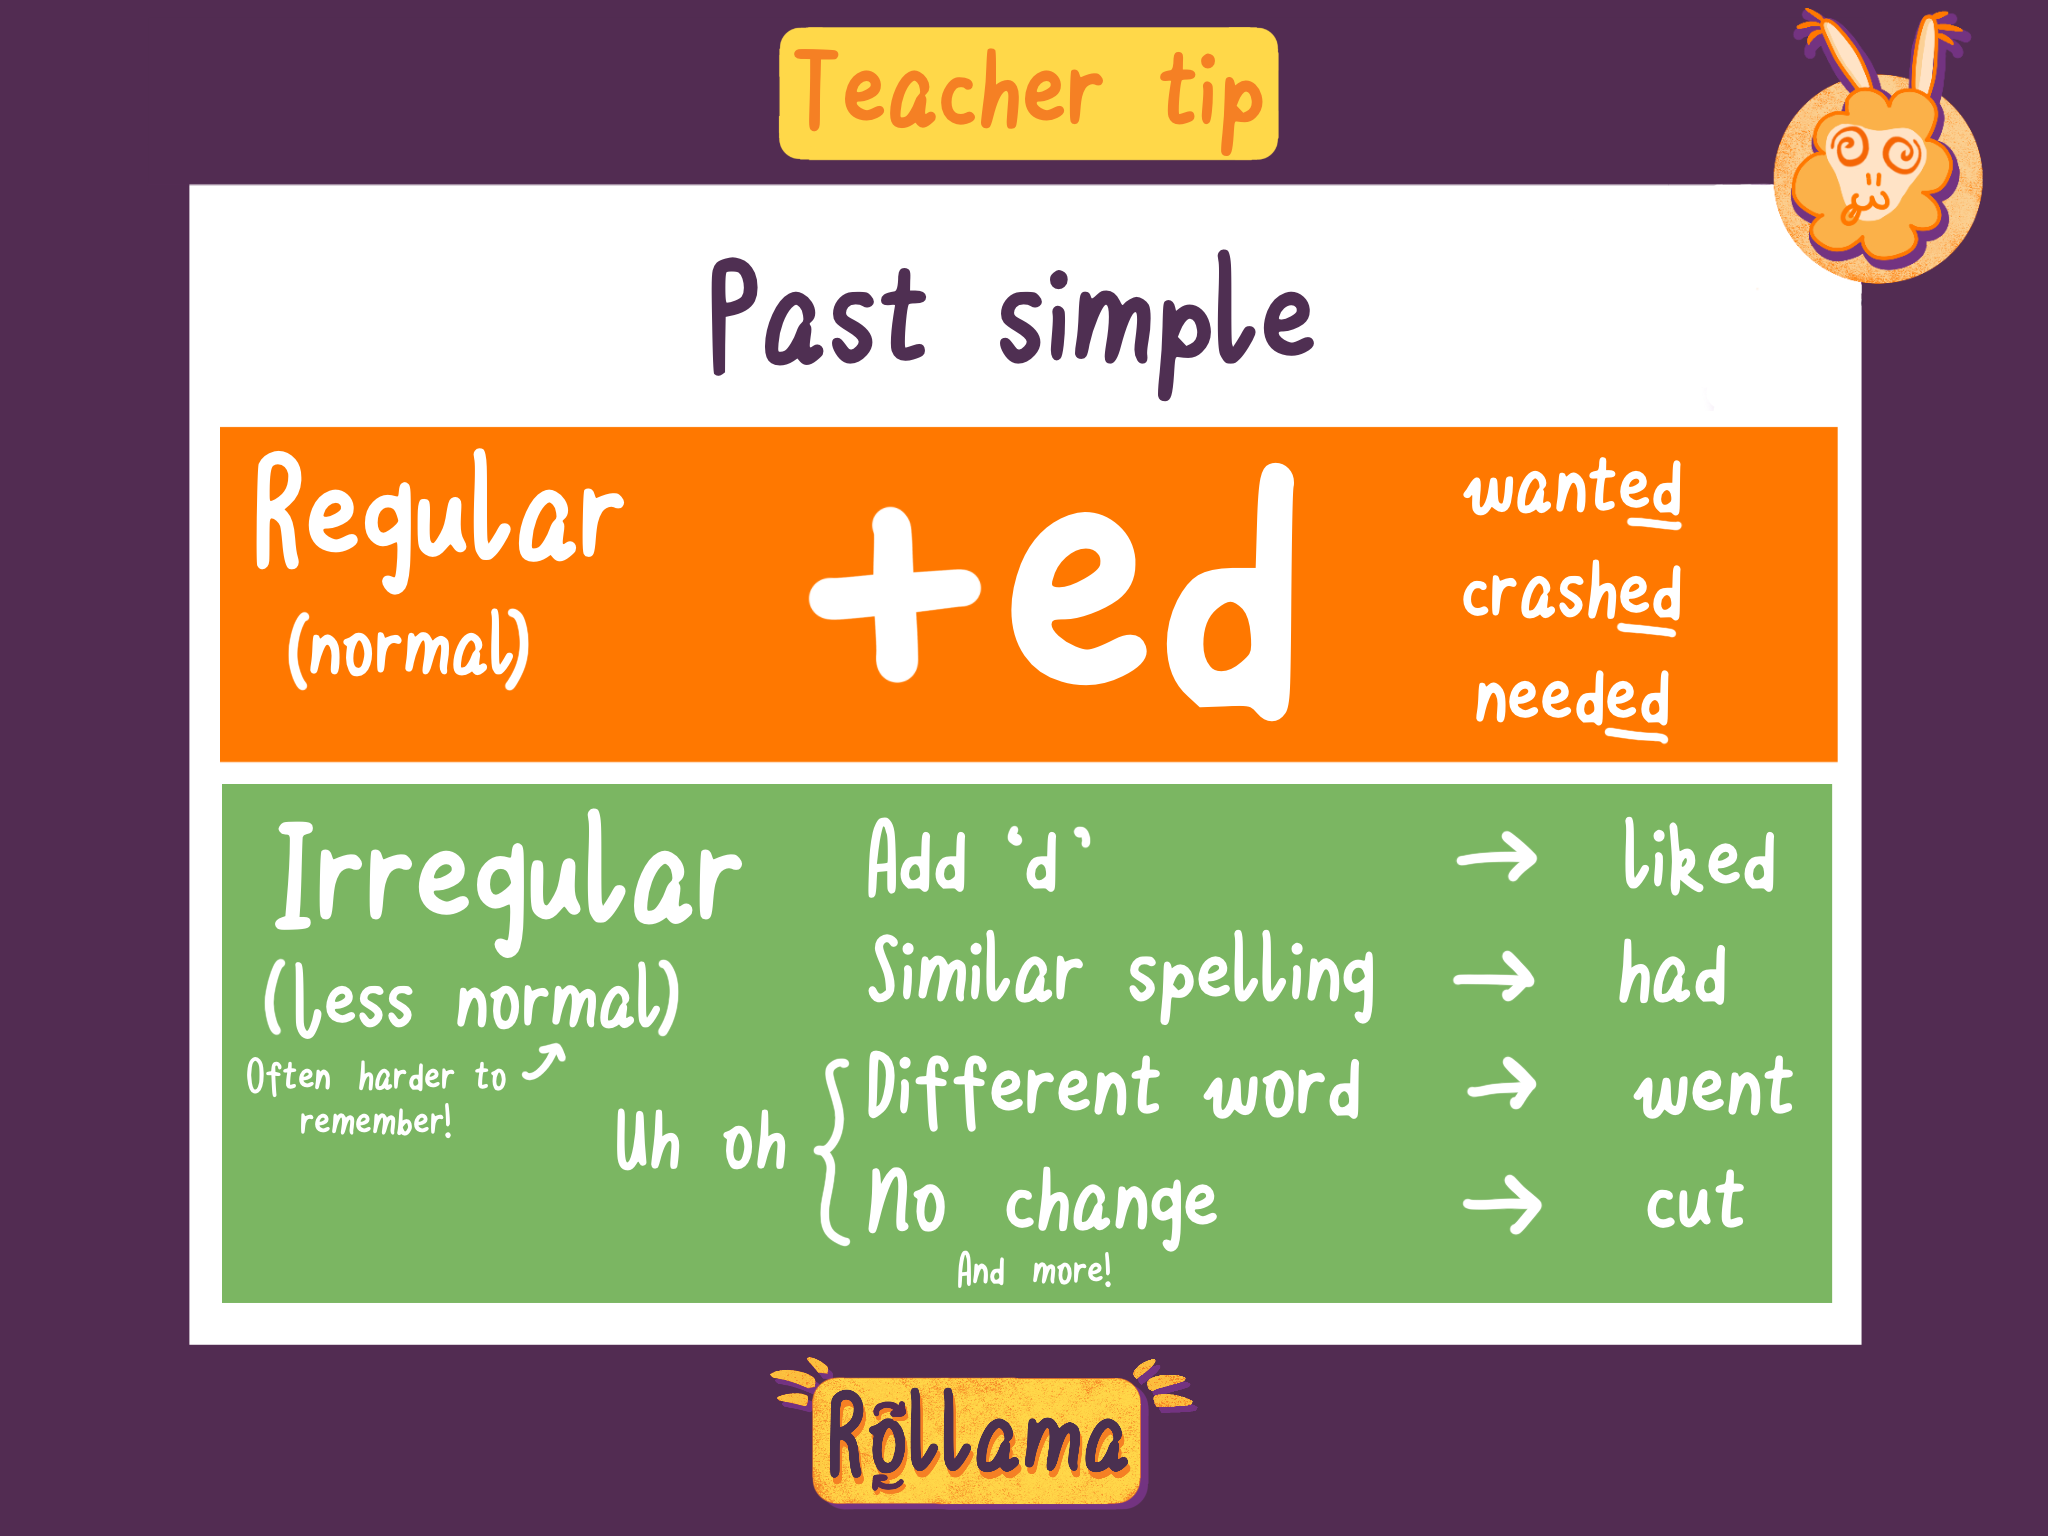 Teacher tip
Past simple
Regular
(normal)
+ed
wanted
crashed
needed
Irregular
(less normal)
Often harder to
remember!
Add ‘d’ → liked
Similar spelling → had
Uh oh
Different word → went
No change → cut
And more!
Rollama